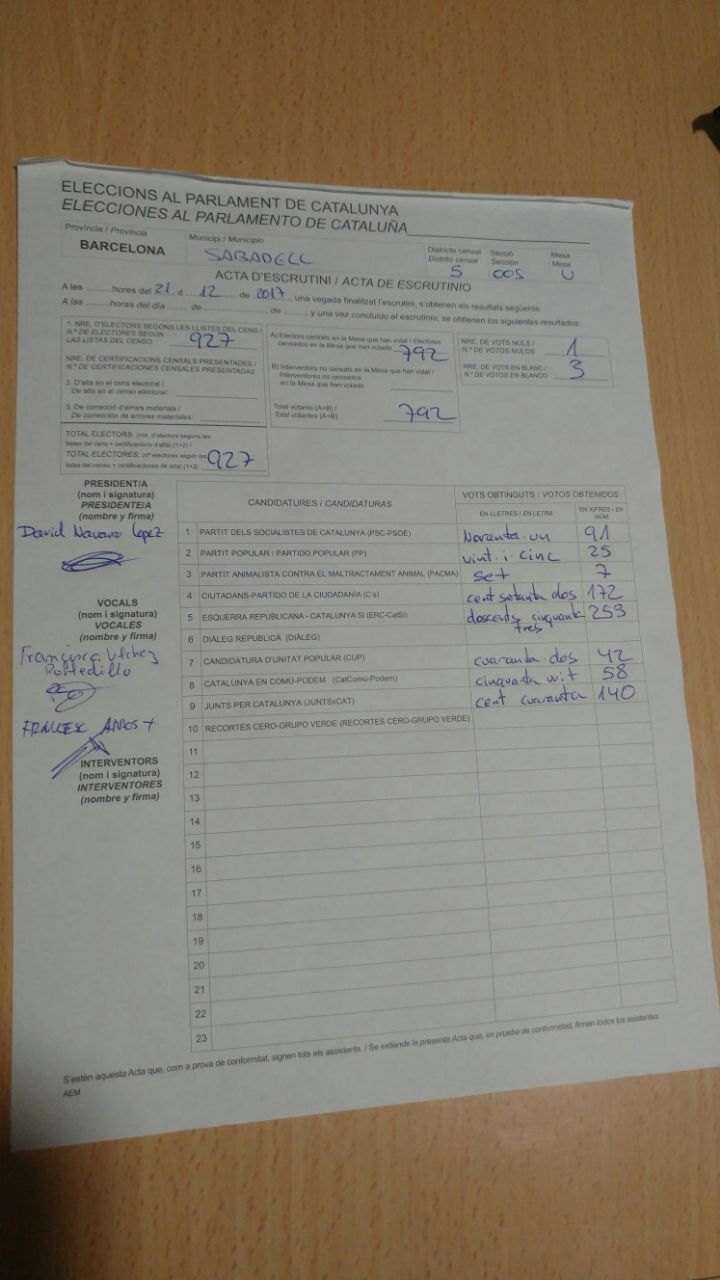 ELECCIONS AL PARLAMENT DE CATALUNYA
ELECCIONES AL PARLAMENTO DE CATALUÑA
Província / Provincia
BARCELONA
Municipi / Municipio
SABADELL
Districte censal
Distrito censal
5
Secció
Sección
005
Mesa
Mesa
U
ACTA D'ESCRUTINI / ACTA DE ESCRUTINIO
A les ........hores del 21 d 12 de 2017, una vegada finalitzat l'escrutini, s'obtenen els resultats següents:
A las ........horas del día ........ de ........ de ........, y una vez concluido el escrutinio, se obtienen los siguientes resultados:
1. NRE. D'ELECTORS SEGONS LES LLISTES DEL CENS /
N.º DE ELECTORES SEGÚN
LAS LISTAS DEL CENSO
927
NRE. DE CERTIFICACIONS CENSALS PRESENTADES /
N.º DE CERTIFICACIONES CENSALES PRESENTADAS
2. D'alta en el cens electoral /
De alta en el censo electoral:
3. De correcció d'errors materials /
De corrección de errores materiales:
TOTAL ELECTORS: (nre. d'electors segons les
llistes del cens + certificacions d'alta) (1+2) /
TOTAL ELECTORES: (nº electores según las
listas del censo + certificaciones de alta) (1+2)
927
A) Electors censats en la Mesa que han votat / Electores
censados en la Mesa que han votado
792
B) Interventors no censats en la Mesa que han votat /
Interventores no censados
en la Mesa que han votado
Total votants (A+B) /
Total votantes (A+B)
792
NRE. DE VOTS NULS /
N.º DE VOTOS NULOS
1
NRE. DE VOTS EN BLANC /
N.º DE VOTOS EN BLANCO
3
PRESIDENT/A
(nom i signatura)
PRESIDENTE/A
(nombre y firma)
David Navarro Lopez
VOCALS
(nom i signatura)
VOCALES
(nombre y firma)
Francisca
FRANCESC
INTERVENTORS
(nom i signatura)
INTERVENTORES
(nombre y firma)
CANDIDATURES / CANDIDATURAS
VOTS OBTINGUTS / VOTOS OBTENIDOS
EN LLETRES / EN LETRA
EN XIFRES / EN NÚM.
1 PARTIT DELS SOCIALISTES DE CATALUNYA (PSC-PSOE) Noranta-un 91
2 PARTIT POPULAR / PARTIDO POPULAR (PP) vint-i-cinc 25
3 PARTIT ANIMALISTA CONTRA EL MALTRACTAMENT ANIMAL (PACMA) set 7
4 CIUTADANS-PARTIDO DE LA CIUDADANÍA (C's) cent setanta dos 172
5 ESQUERRA REPUBLICANA - CATALUNYA SÍ (ERC-CatSí) doscents cinquanta tres 253
6 DIÀLEG REPUBLICÀ (DIÀLEG)
7 CANDIDATURA D'UNITAT POPULAR (CUP) cuaranta dos 42
8 CATALUNYA EN COMÚ-PODEM (CatComú-Podem) cinquanta vuit 58
9 JUNTS PER CATALUNYA (JUNTSxCAT) cent cuaranta 140
10 RECORTES CERO-GRUPO VERDE (RECORTES CERO-GRUPO VERDE)
11
12
13
14
15
16
17
18
19
20
21
22
23
S'estén aquesta Acta que, com a prova de conformitat, signen tots els assistents. / Se extiende la presente Acta que, en prueba de conformidad, firman todos los asistentes.
AEM